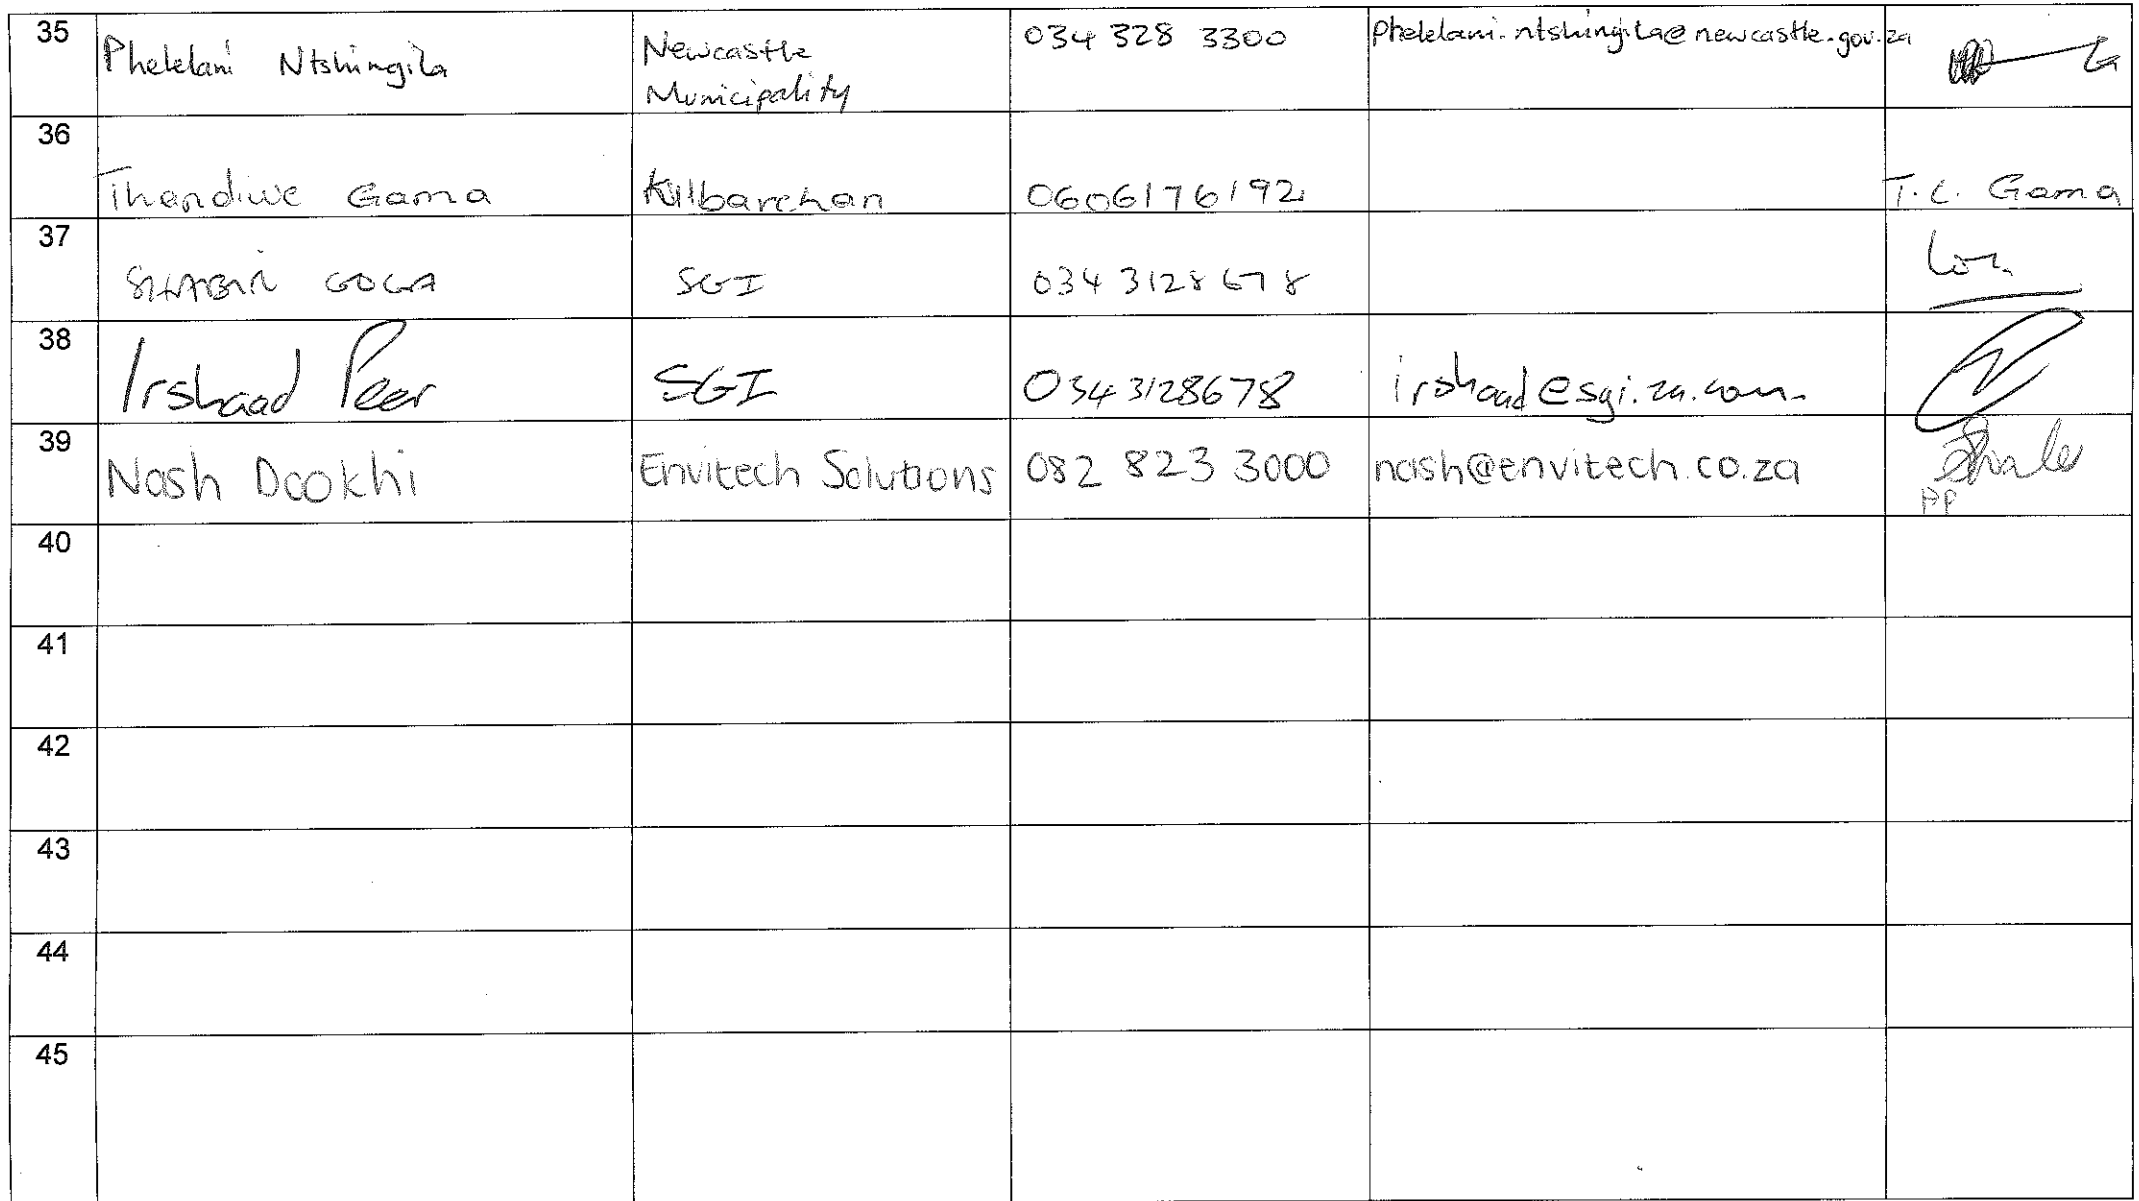 35
Phelelani Ntshingila
Newcastle
Municipality
034 328 3300
phelelani.ntshingila@newcastle.gov.za
36
Thandiwe Gama
Kilbarchan
0606176192
T.C. Gama
37
SHABIR GOGA
SGI
034 3128678
38
Irshaad Peer
SGI
034 3128678
irshaad@sgi.za.com
39
Nash Dookhi
Envitech Solutions
082 823 3000
nash@envitech.co.za
PP
40
41
42
43
44
45